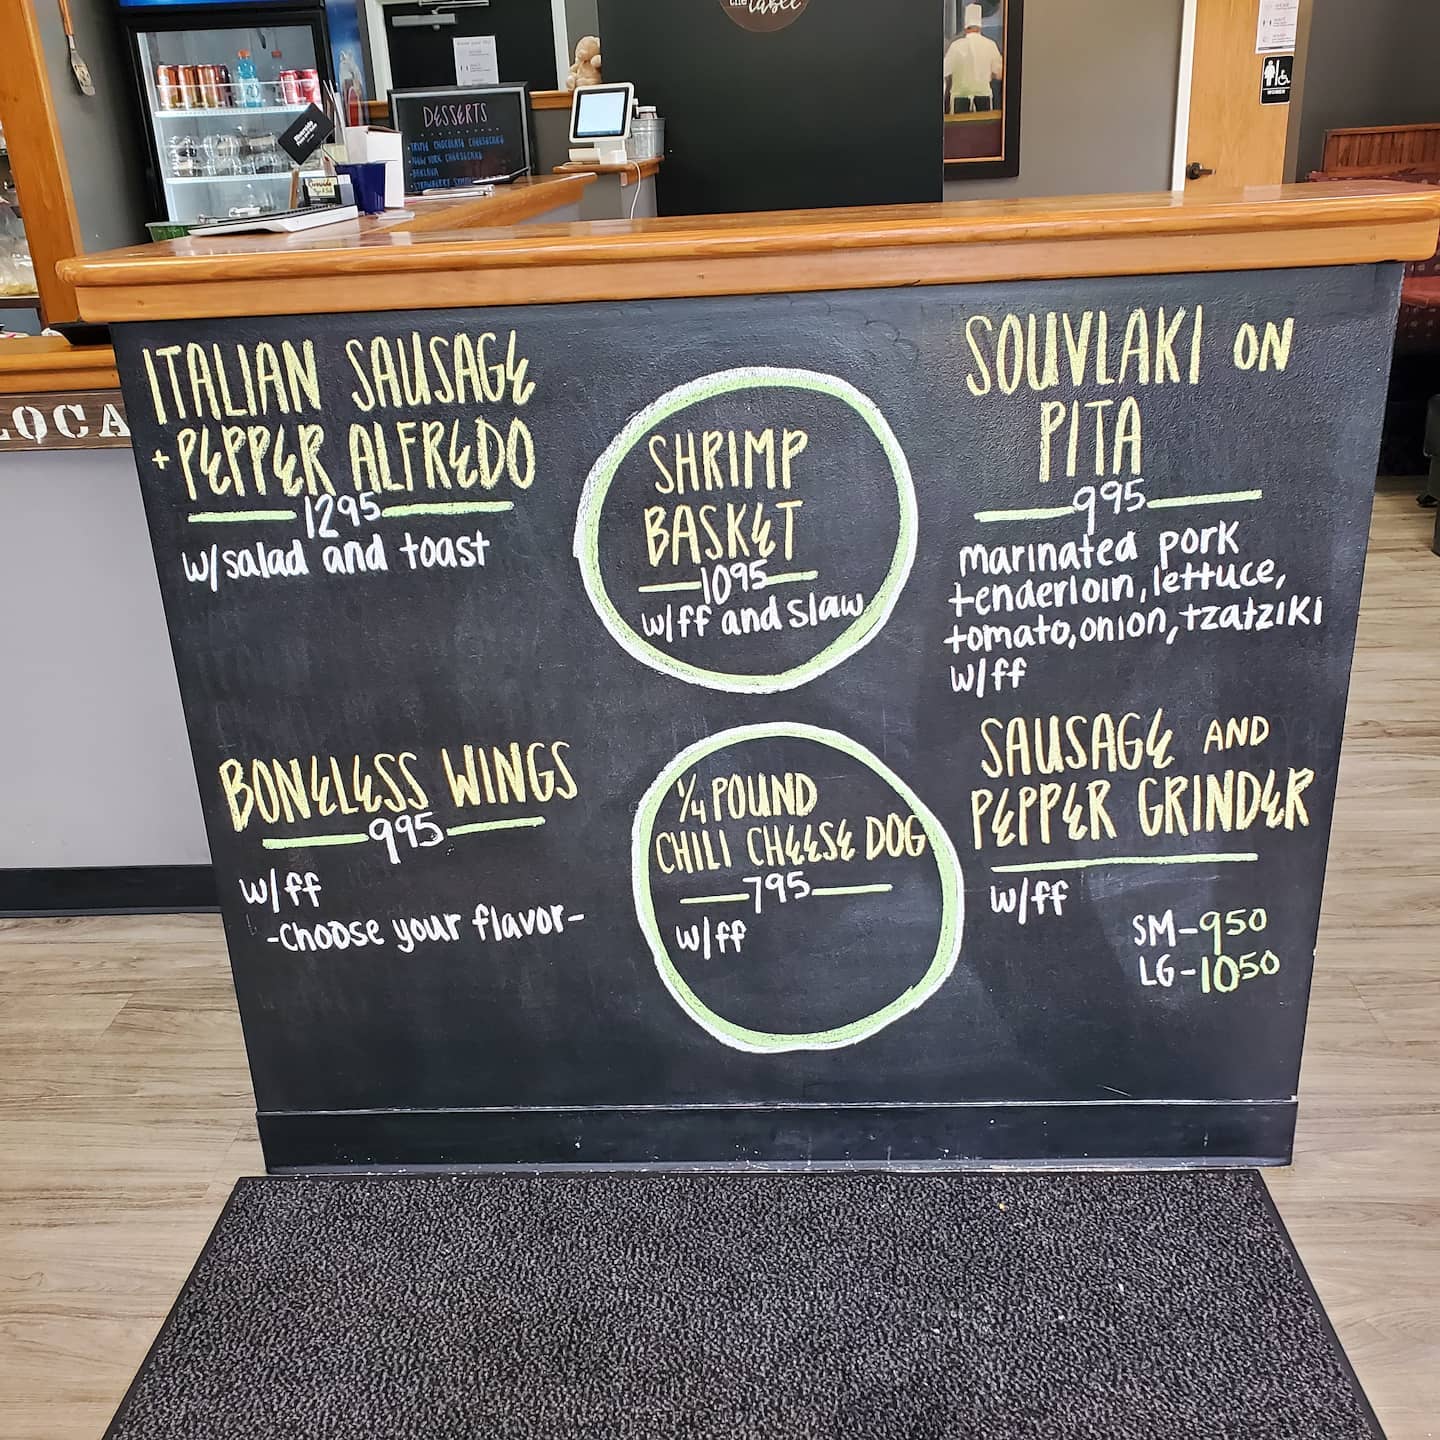 the table
WOMEN
DESSERTS
TRIPLE CHOCOLATE CHEESECAKE
NEW YORK CHEESECAKE
BAKLAVA
STRAWBERRY
LOCA
ITALIAN SAUSAGE
+ PEPPER ALFREDO
1295
w/salad and toast
BONELESS WINGS
995
w/ff
-choose your flavor-
SHRIMP
BASKET
1095
w/ff and slaw
1/4 POUND
CHILI CHEESE DOG
795
w/ff
SOUVLAKI ON
PITA
995
marinated pork
tenderloin, lettuce,
tomato, onion, tzatziki
w/ff
SAUSAGE AND
PEPPER GRINDER
w/ff
SM-950
LG-1050